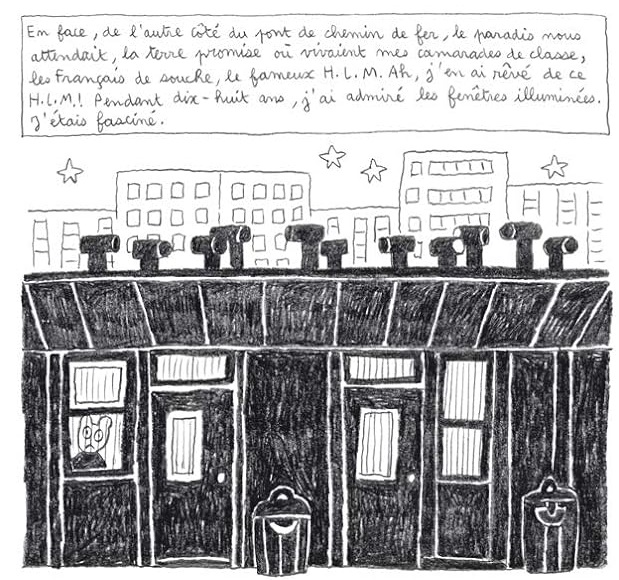 En face, de l'autre côté du pont de chemin de fer, le paradis nous
attendait, la terre promise où vivaient mes camarades de classe,
les Français de souche, le fameux H.L.M. Ah, j'en ai rêvé de ce
H.L.M.! Pendant dix-huit ans, j'ai admiré les fenêtres illuminées.
J'étais fasciné.